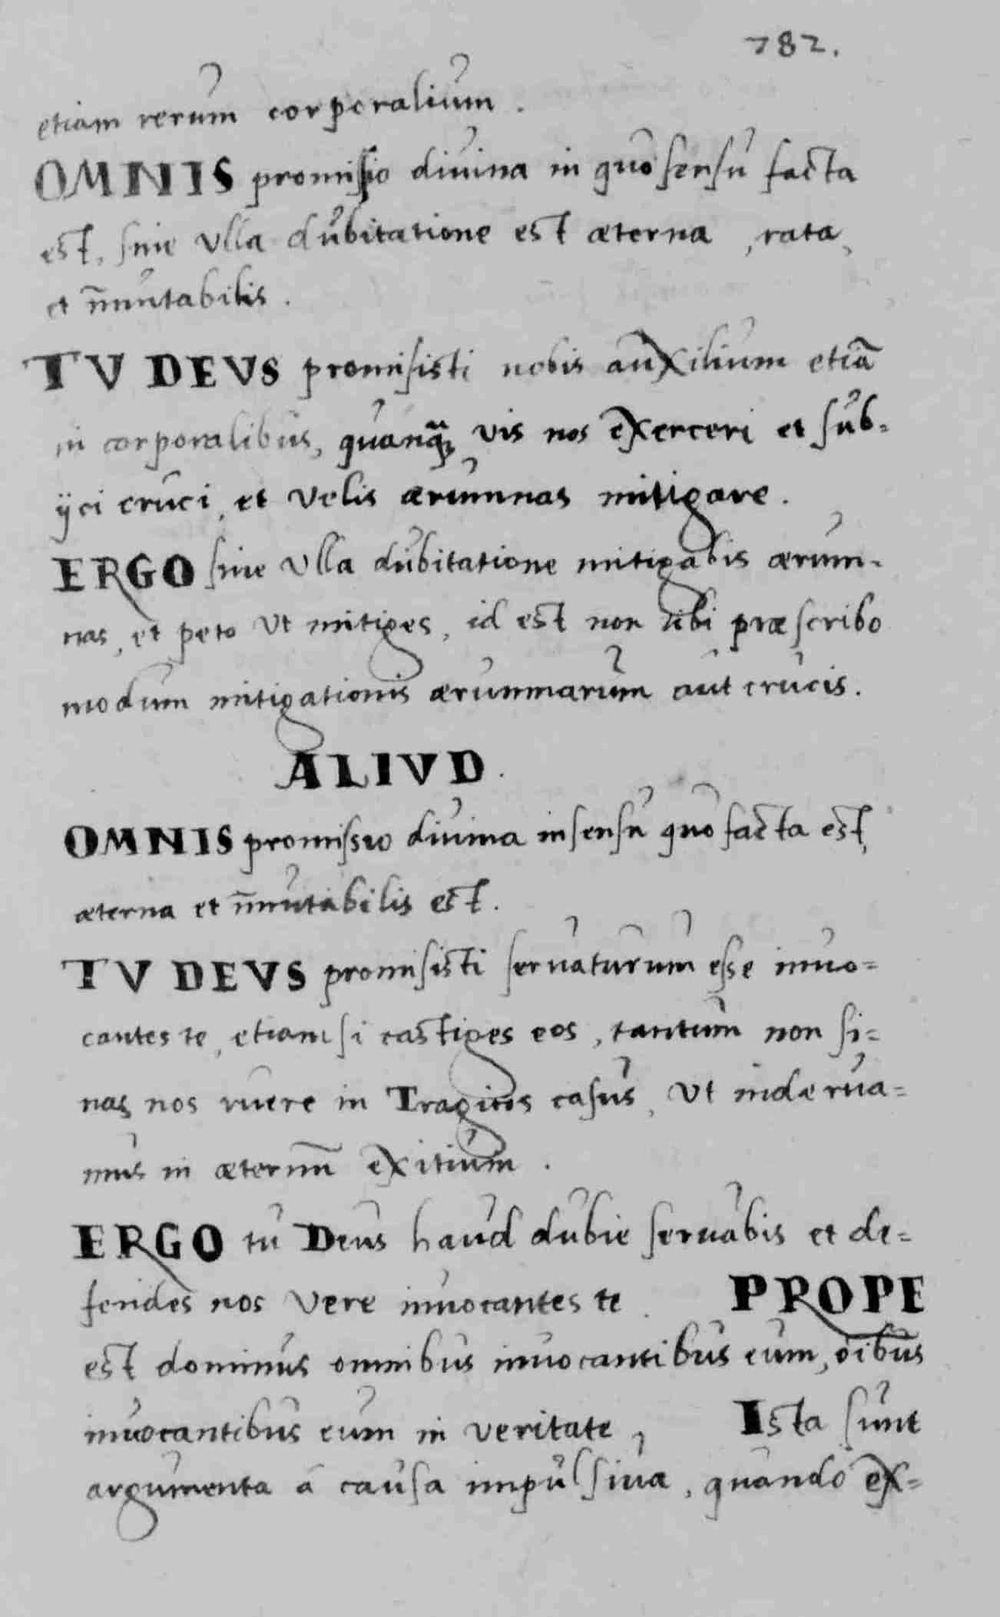 782.
etiam rerum corporalium.
OMNIS promissio diuina in quo sensu facta
est, sine ulla dubitatione est æterna, rata,
et im̄utabilis.
TV DEVS promisisti nobis auxilium etiā
in corporalibus, quanq̃ vis nos exerceri et sub-
ijci cruci, et velis ærumnas mitigare.
ERGO sine ulla dubitatione mitigabis ærum-
nas, et peto ut mitiges, id est non tibi præscribo
modum mitigationis ærumnarum aut crucis.
ALIVD.
OMNIS promissio diuina in sensu quo facta est,
æterna et im̄utabilis est.
TV DEVS promisisti seruaturum esse inuo=
cantes te, etiam si castiges eos, tantum non si=
nas nos ruere in Tragicos casus, ut inde rua=
mus in æternū exitium.
ERGO tu Deus haud dubie seruabis et de=
fendes nos vere inuocantes te. PROPE
est dominus omnibus inuocantibus eum, oībus
inuocantibus eum in veritate, Ista sunt
argumenta a causa impulsiua, quando ex=